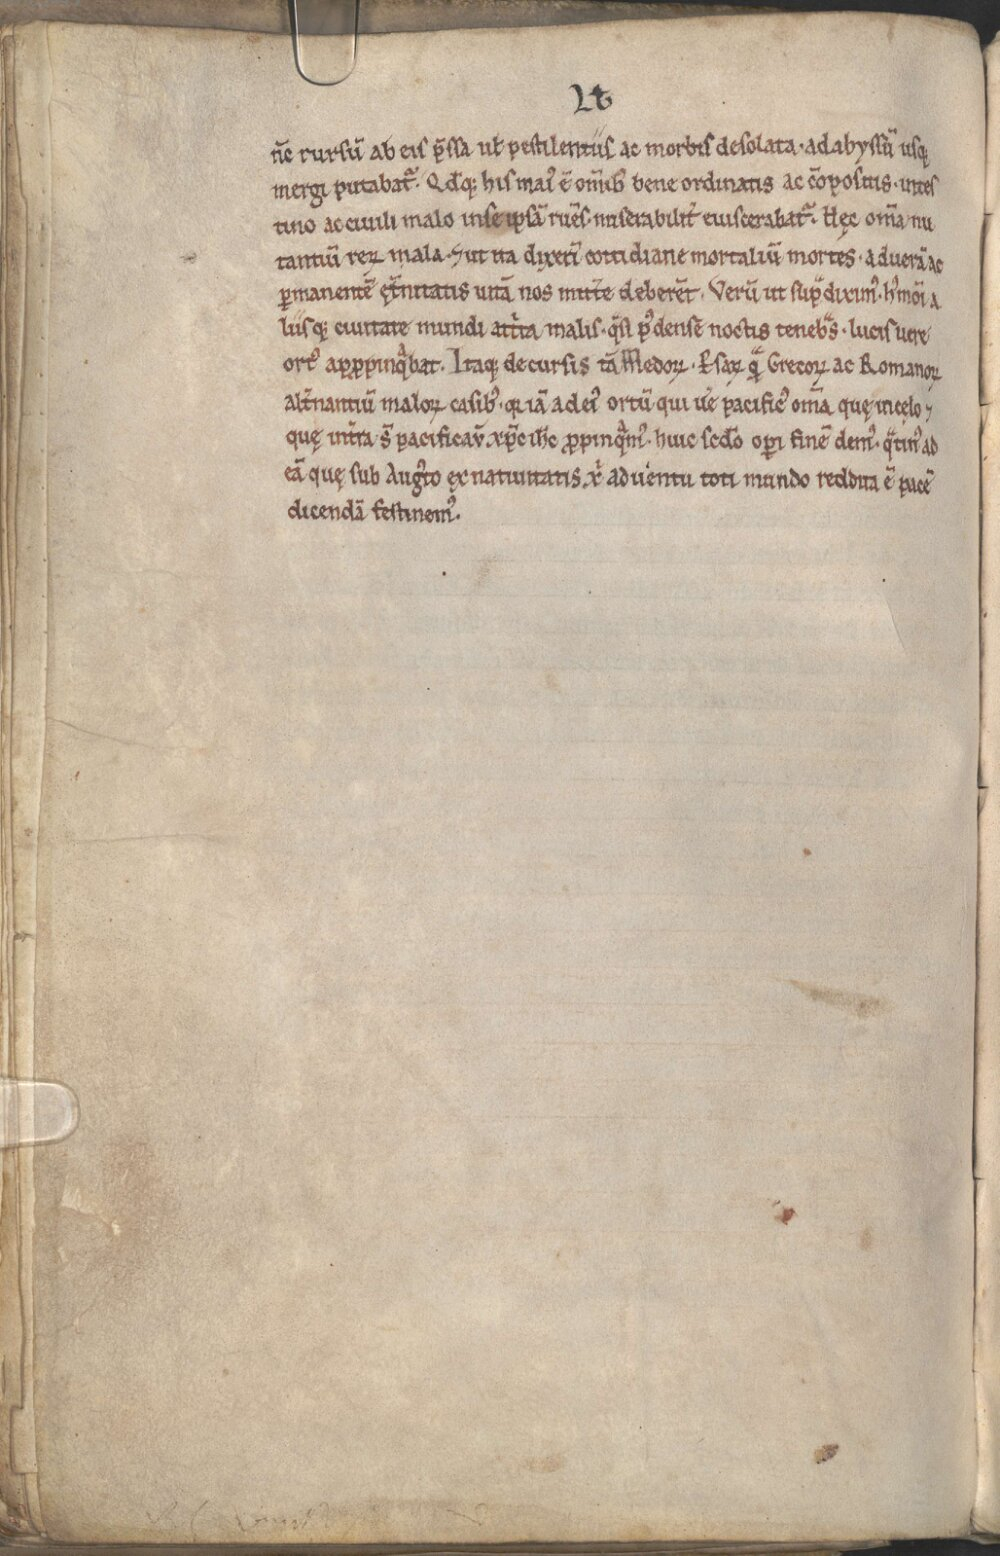 Lt
nc̄ rursū ab eis p̄ssa ul̄ pestilentiis ac morbis desolata · ad abyssū usq;
mergi putabat᷑. Qd̄q; his mai᷒ ē om̄ib᷒ bene ordinatis ac c̄opositis · intes
tino ac ciuili malo in se ipsā ruēs miserabilit᷑ euiscerabat᷑. Hęc om̄a nu
tantiū reꝝ mala · s; ut ita dixeri᷑ cottidiane mortaliū mortes · ad uerā ac
ꝑmanentē et᷑nitatis uitā nos mitt᷑e deberēt. Verū ut sup᷑ dixim᷒ · h᷒mōi a
liisq; ciuitate mundi att᷑ita malis · q̄si p᷒ densē noctis teneb᷑s · lucis uere
ort᷒ apꝓpinq̄bat. Itaq; decursis tā Medoꝝ · Ꝑsaꝝ q̄ Grecoꝝ ac Romanoꝝ
alt᷑nantiū maloꝝ casib᷒ · qr iā ad ei᷒ ortū qui ue᷑ pacific᷒ om̄a quę in celo ⁊
quę in t᷑ra s̄ pacificau᷑ xp̄c ih̄c ꝓpinq̄m᷒ · huic sc̄do oꝑi finē dem᷒ · q̄tin᷒ ad
eā quę sub Aug᷒to ex natiuitatis x᷑ aduentu toti mundo reddita ē pacē
dicendā festinem᷒.